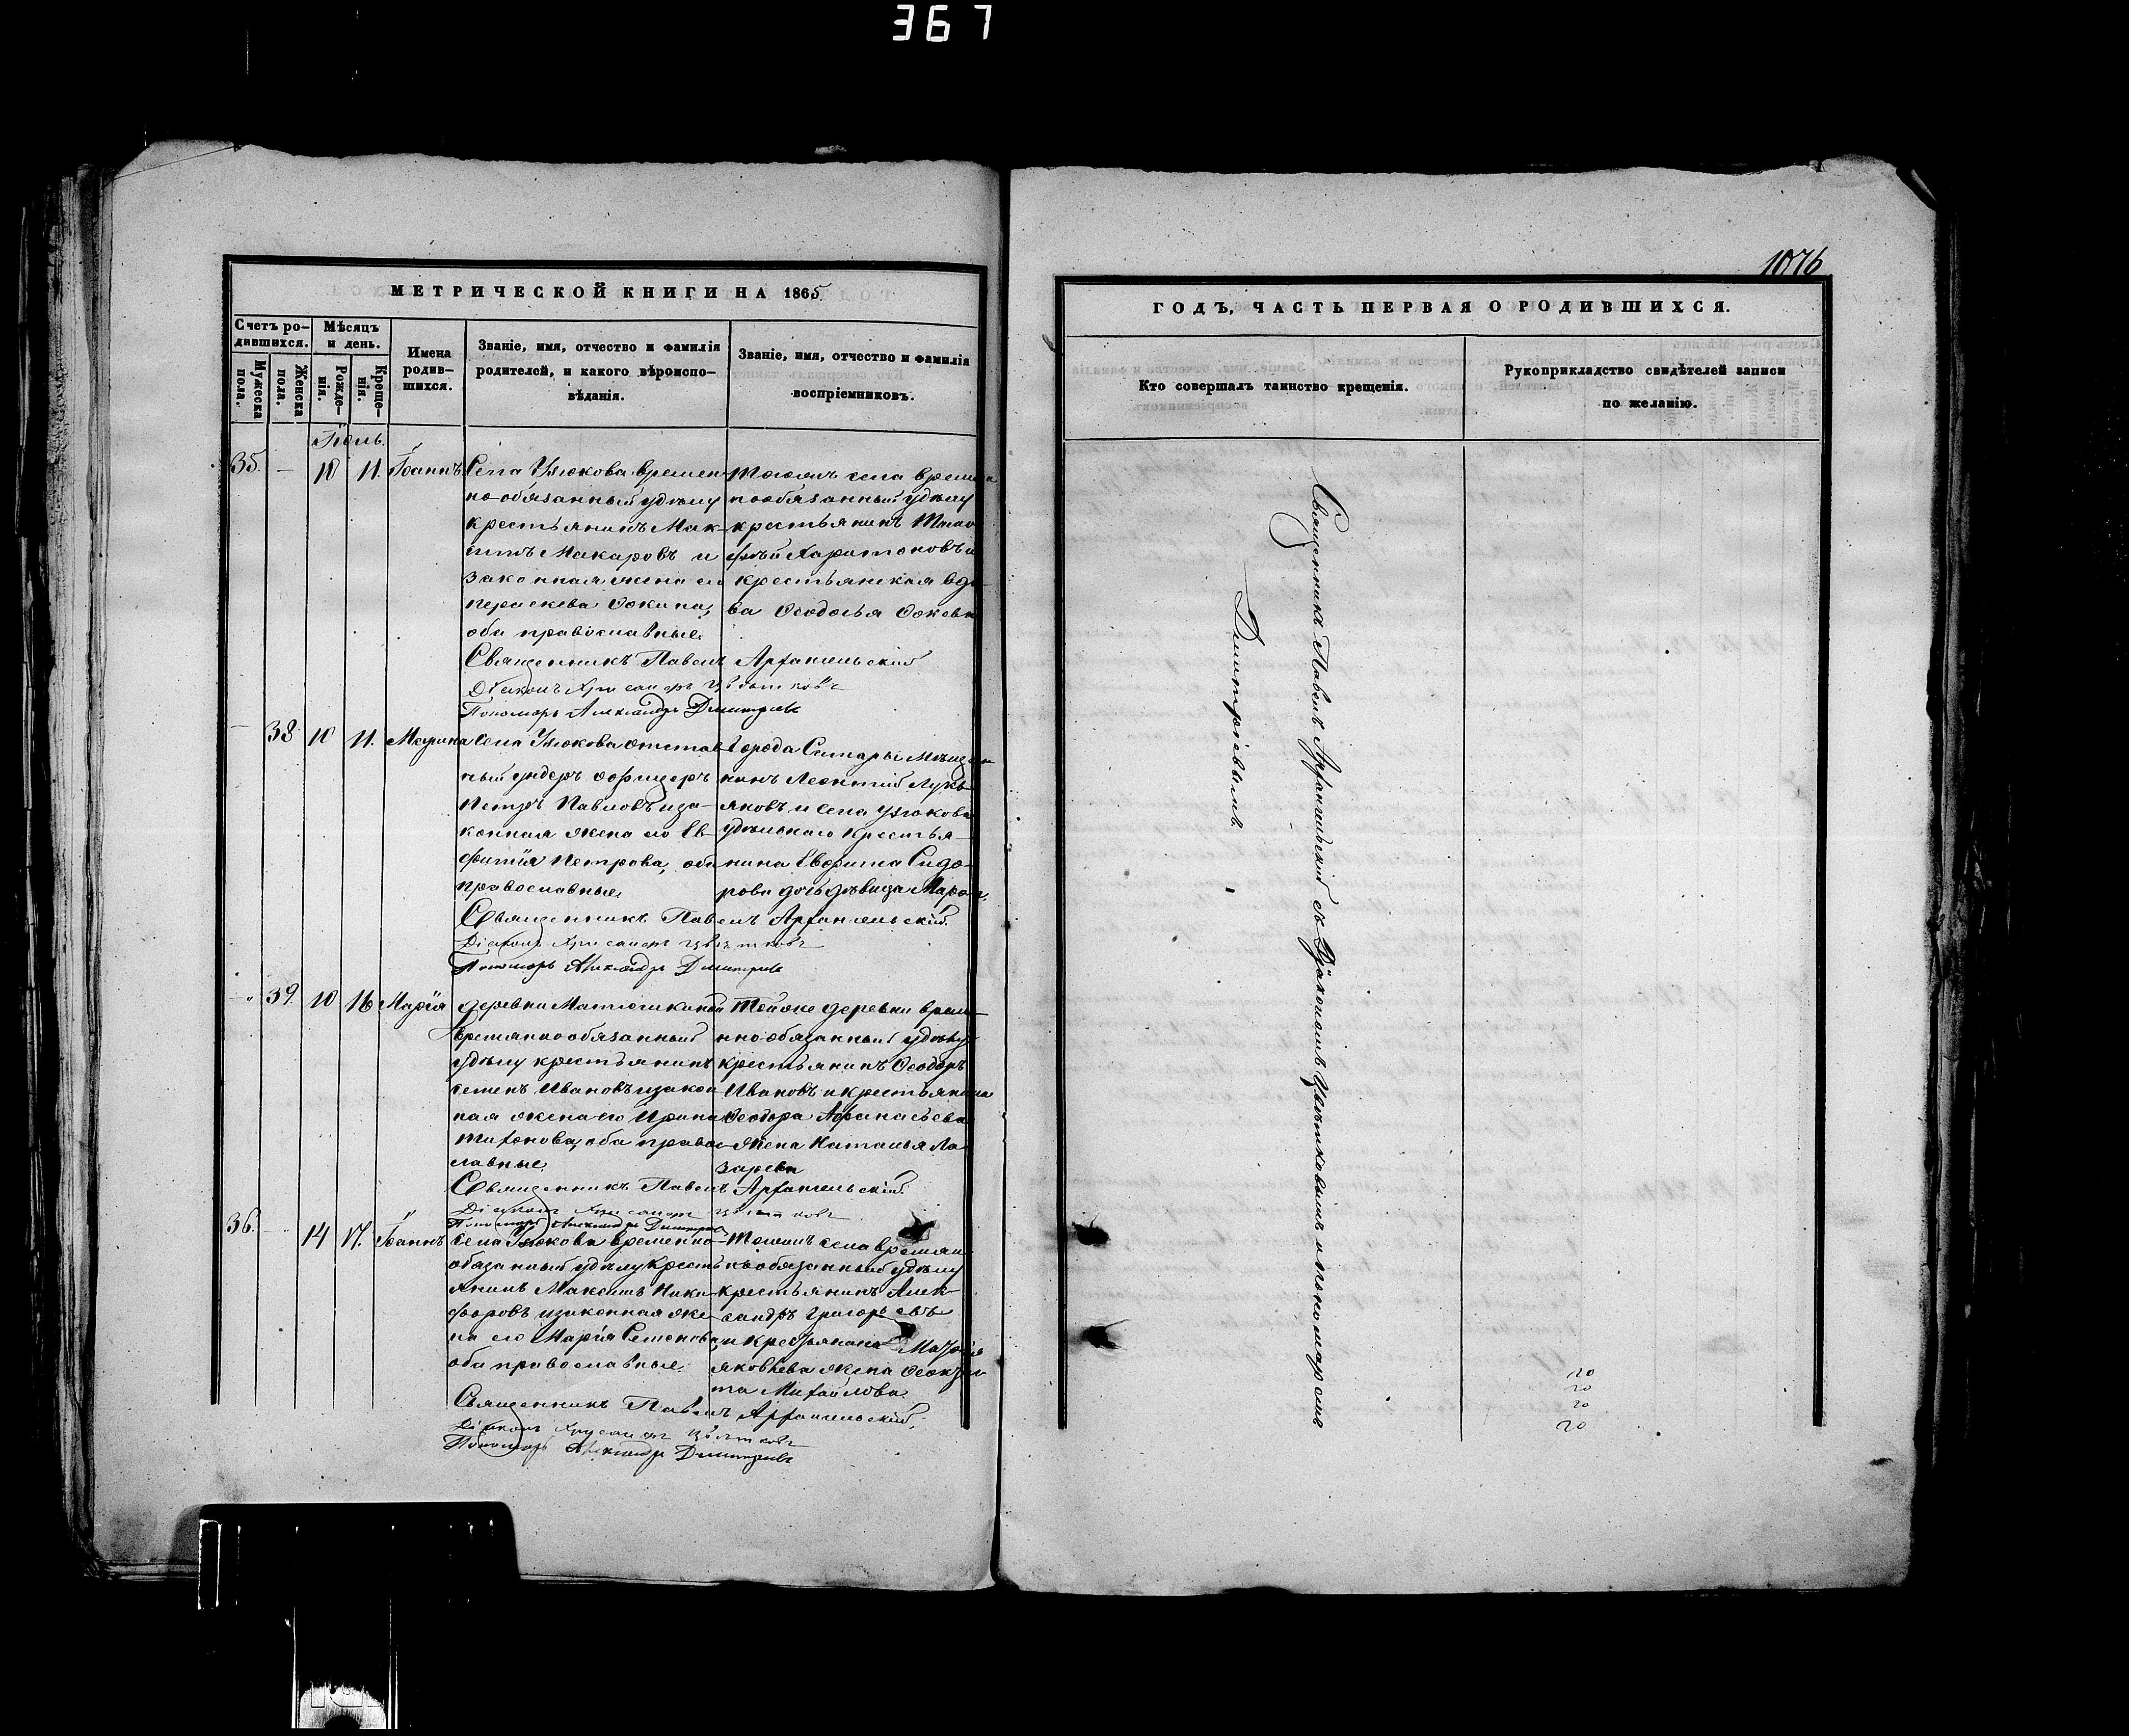 367
МЕТРИЧЕСКОЙ КНИГИ НА 1865
Счетъ ро-
дившихся.
Мѣсяцъ
и день.
Мужеска
пола.
Женска
пола.
Рожде-
нія.
Креще-
нія.
Имена
родив-
шихся.
Званіе, имя, отчество и фамилія
родителей, и какого вѣроиспо-
вѣданія.
Званіе, имя, отчество и фамилія
воспріемниковъ.
Іюль.
35. — 10 11. Іоаннъ
Села Узюкова времен-
но-обязанный удѣлу
крестьянинъ Мак-
симъ Макаровъ и
законная жена его
Параскева Фокина,
оба православные.
Тогожъ села времен
нообязанный удѣлу
крестьянинъ
Харитоновъ и
крестьянская вдо-
ва Ѳеодосья
Священникъ Павелъ Архангельскій
Діаконъ Хрисанфъ Цвѣтковъ
Пономарь Александръ Дмитріевъ
— 38 10 11. Марина
Села Узюкова отстав-
ный ундеръ офицеръ
Петръ Павловъ и за-
конная жена его Ев-
фимія Петрова, оба
православные.
Города Самары мѣщан
нинъ Леонтій Лукь-
яновъ и села Узюкова
удѣльнаго крестья-
нина Сидо-
рова дочь дѣвица
Священникъ Павелъ Архангельскій.
Діаконъ Хрисанфъ Цвѣтковъ
Пономарь Александръ Дмитріевъ
— 39. 10 16 Марія
деревни Матюшкиной
временно обязанный
удѣлу крестьянинъ
Семенъ Ивановъ и закон
ная жена его Ирина
Тихонова, оба право-
славные.
Тойже деревни време-
нно-обязанный удѣлу
крестьянинъ Ѳеодоръ
Ивановъ и крестьянина
Ѳеодора Афанасьева
жена Наталья Ла
зарева
Священникъ Павелъ Архангельскій
Діаконъ Хрисанфъ Цвѣтковъ
Пономарь Александръ Дмитріевъ
36. — 14 17. Іоаннъ
Села Узюкова временно-
обязанный удѣлу кресть
янинъ Максимъ Ники-
форовъ и законная же-
на его Марія Семенова,
оба православные.
Тогожъ села времян-
но обязанный удѣлу
крестьянинъ Алек-
сандръ Григорьевъ
и крестьянина
Яковлева жена
та Михайлова.
Священникъ Павелъ Архангельскій.
Діаконъ Хрисанфъ Цвѣтковъ
Пономарь Александръ Дмитріевъ
1076
ГОДЪ, ЧАСТЬ ПЕРВАЯ О РОДИВШИХСЯ.
Кто совершалъ таинство крещенія.
Рукоприкладство свидѣтелей записи
по желанію.
Священникъ Павелъ Архангельскій съ Діакономъ Цвѣтковымъ и пономаремъ
Дмитріевымъ.
20
20
20
20